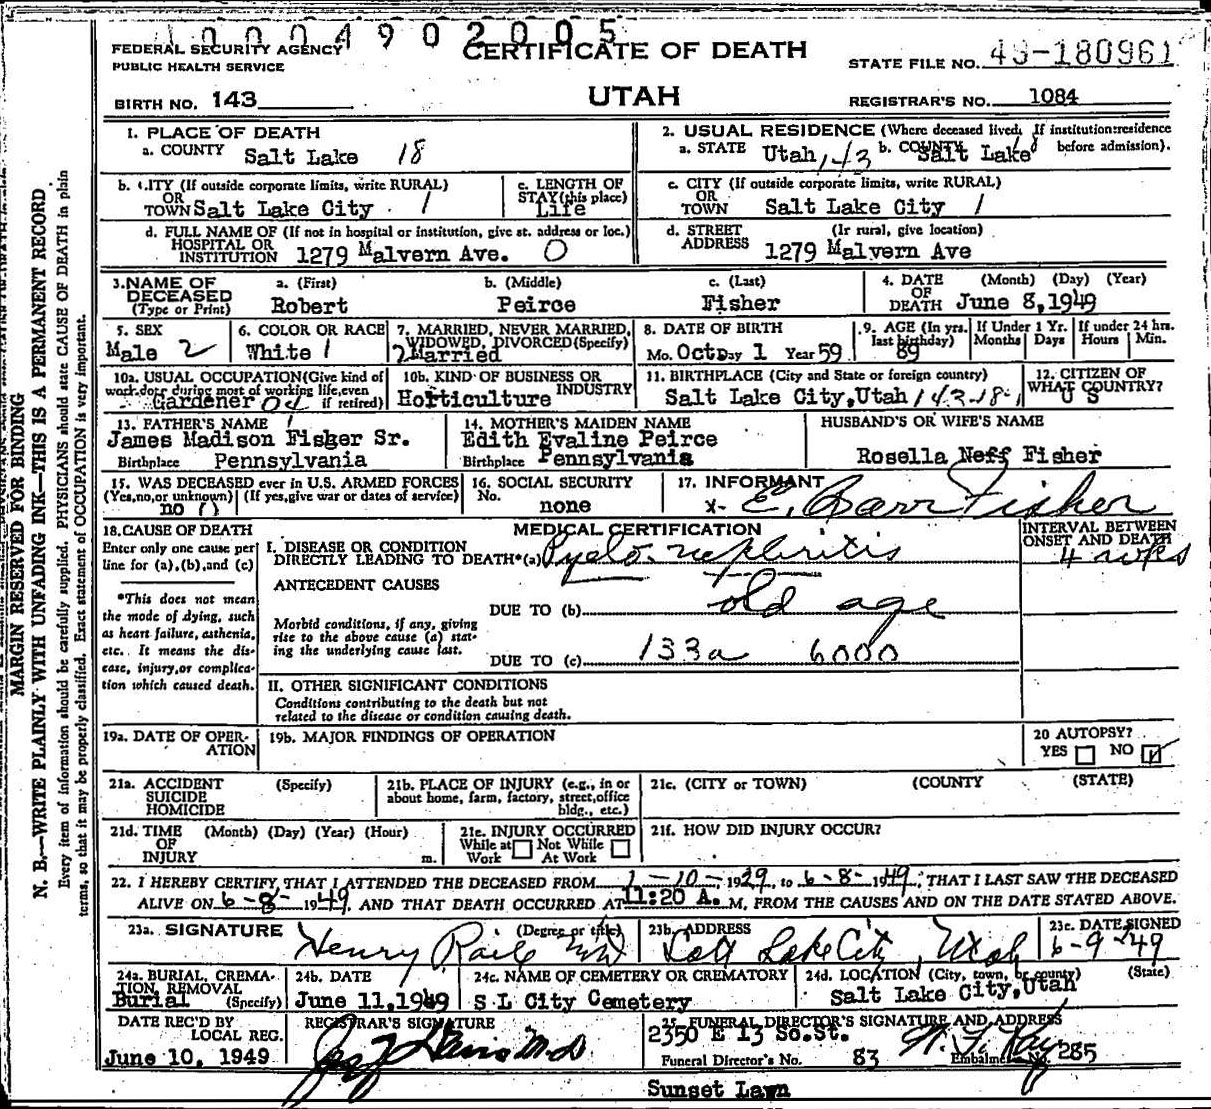 10004902005
FEDERAL SECURITY AGENCY CERTIFICATE OF DEATH STATE FILE NO. 49-180961
PUBLIC HEALTH SERVICE
BIRTH NO. 143 UTAH REGISTRAR'S NO. 1084
1. PLACE OF DEATH 2. USUAL RESIDENCE (Where deceased lived. If institution: residence before admission).
a. COUNTY Salt Lake 18 a. STATE Utah 143 b. COUNTY Salt Lake 18
b. CITY (If outside corporate limits, write RURAL) c. LENGTH OF STAY (this place) c. CITY (If outside corporate limits, write RURAL)
OR TOWN Salt Lake City 1 Life OR TOWN Salt Lake City 1
d. FULL NAME OF (If not in hospital or institution, give st. address or loc.) d. STREET (If rural, give location)
HOSPITAL OR INSTITUTION 1279 Malvern Ave. 0 ADDRESS 1279 Malvern Ave
3. NAME OF DECEASED (Type or Print) a. (First) b. (Middle) c. (Last) 4. DATE OF DEATH (Month) (Day) (Year)
Robert Peirce Fisher June 8, 1949
5. SEX 6. COLOR OR RACE 7. MARRIED, NEVER MARRIED, WIDOWED, DIVORCED (Specify) 8. DATE OF BIRTH 9. AGE (In yrs. last birthday) If Under 1 Yr. Months Days If under 24 hrs. Hours Min.
Male 2 White 1 2 Married Mo. Oct Day 1 Year 59 89
10a. USUAL OCCUPATION (Give kind of work done during most of working life, even if retired) 10b. KIND OF BUSINESS OR INDUSTRY 11. BIRTHPLACE (City and State or foreign country) 12. CITIZEN OF WHAT COUNTRY?
Gardener 04 Horticulture Salt Lake City, Utah 143-18-1 U S
13. FATHER'S NAME 14. MOTHER'S MAIDEN NAME HUSBAND'S OR WIFE'S NAME
James Madison Fisher Sr. Edith Evaline Peirce
Birthplace Pennsylvania Birthplace Pennsylvania Rosella Neff Fisher
15. WAS DECEASED ever in U.S. ARMED FORCES 16. SOCIAL SECURITY No. 17. INFORMANT
(Yes, no, or unknown) (If yes, give war or dates of service)
no 0 none x- E. Barr Fisher
18. CAUSE OF DEATH MEDICAL CERTIFICATION INTERVAL BETWEEN ONSET AND DEATH
Enter only one cause per line for (a), (b), and (c)
I. DISEASE OR CONDITION DIRECTLY LEADING TO DEATH*(a) Pyelo-nephritis 4 wks
ANTECEDENT CAUSES
DUE TO (b) old age
*This does not mean the mode of dying, such as heart failure, asthenia, etc. It means the disease, injury, or complication which caused death.
Morbid conditions, if any, giving rise to the above cause (a) stating the underlying cause last.
DUE TO (c) 133a 6000
II. OTHER SIGNIFICANT CONDITIONS
Conditions contributing to the death but not related to the disease or condition causing death.
19a. DATE OF OPERATION 19b. MAJOR FINDINGS OF OPERATION 20 AUTOPSY?
YES NO
21a. ACCIDENT SUICIDE HOMICIDE (Specify) 21b. PLACE OF INJURY (e.g., in or about home, farm, factory, street, office bldg., etc.) 21c. (CITY or TOWN) (COUNTY) (STATE)
21d. TIME OF INJURY (Month) (Day) (Year) (Hour) m. 21e. INJURY OCCURRED While at Work Not While At Work 21f. HOW DID INJURY OCCUR?
22. I HEREBY CERTIFY, THAT I ATTENDED THE DECEASED FROM 1-10-, 1929, to 6-8- 1949, THAT I LAST SAW THE DECEASED
ALIVE ON 6-8- 1949, AND THAT DEATH OCCURRED AT 11:20 A. M, FROM THE CAUSES AND ON THE DATE STATED ABOVE.
23a. SIGNATURE (Degree or title) 23b. ADDRESS 23c. DATE SIGNED
Henry Raile MD Salt Lake City, Utah 6-9-49
24a. BURIAL, CREMATION, REMOVAL (Specify) 24b. DATE 24c. NAME OF CEMETERY OR CREMATORY 24d. LOCATION (City, town, or county) (State)
Burial June 11, 1949 S L City Cemetery Salt Lake City, Utah
DATE REC'D BY LOCAL REG. REGISTRAR'S SIGNATURE 25. FUNERAL DIRECTOR'S SIGNATURE AND ADDRESS
2350 E 13 So. St.
June 10, 1949 M.D. Funeral Director's No. 83 Embalmer's No. 285
Sunset Lawn
MARGIN RESERVED FOR BINDING
N. B.—WRITE PLAINLY WITH UNFADING INK—THIS IS A PERMANENT RECORD
Every item of information should be carefully supplied. PHYSICIANS should state CAUSE OF DEATH in plain
terms, so that it may be properly classified. Exact statement of OCCUPATION is very important.